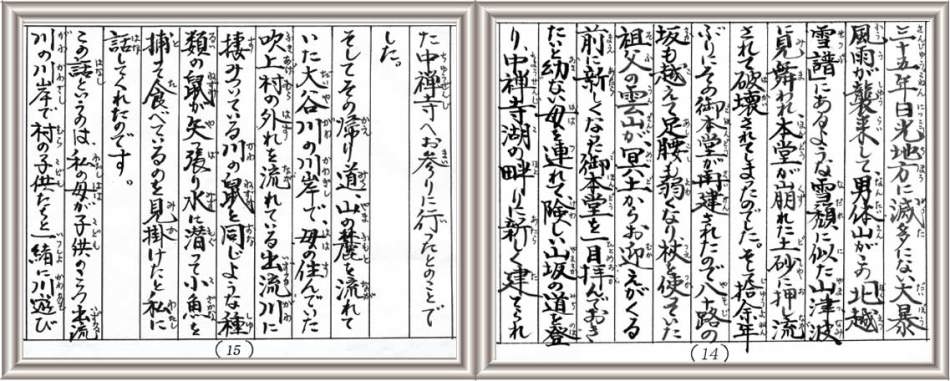 三十五年日光地方に滅多にない大暴
風雨が襲来して男体山がこの「北越
雪譜」にあるような雪頽に似た山津波
に見舞われ本堂が崩れた土砂に押し流
されて破壊されてしまったのでした。そして拾余年
ぶりにその御本堂が再建されたので八十路の
坂も越えて足腰も弱くなり杖を使っていた
祖父の雲山が、冥土からお迎えがくる
前に新しくなった御本堂を一目拝んでおき
たいと幼ない母を連れて険しい山坂の道を登
り、中禅寺湖の畔りに新しく建てられ
(14)
た中禅寺へお参りに行ったとのことで
した。
そしてその帰り道、山の麓を流れて
いた大谷川の川岸で、母の住んでいた
吹上村の外れを流れている出流川に
棲みついている川の鼠と同じような種
類の鼠が矢っ張り水に潜って小魚を
捕って食べているのを見掛けたと私に
話してくれたのです。
この話というのは、私の母が子供のころ出流
川の川岸で村の子供たちと一緒に川遊び
(15)